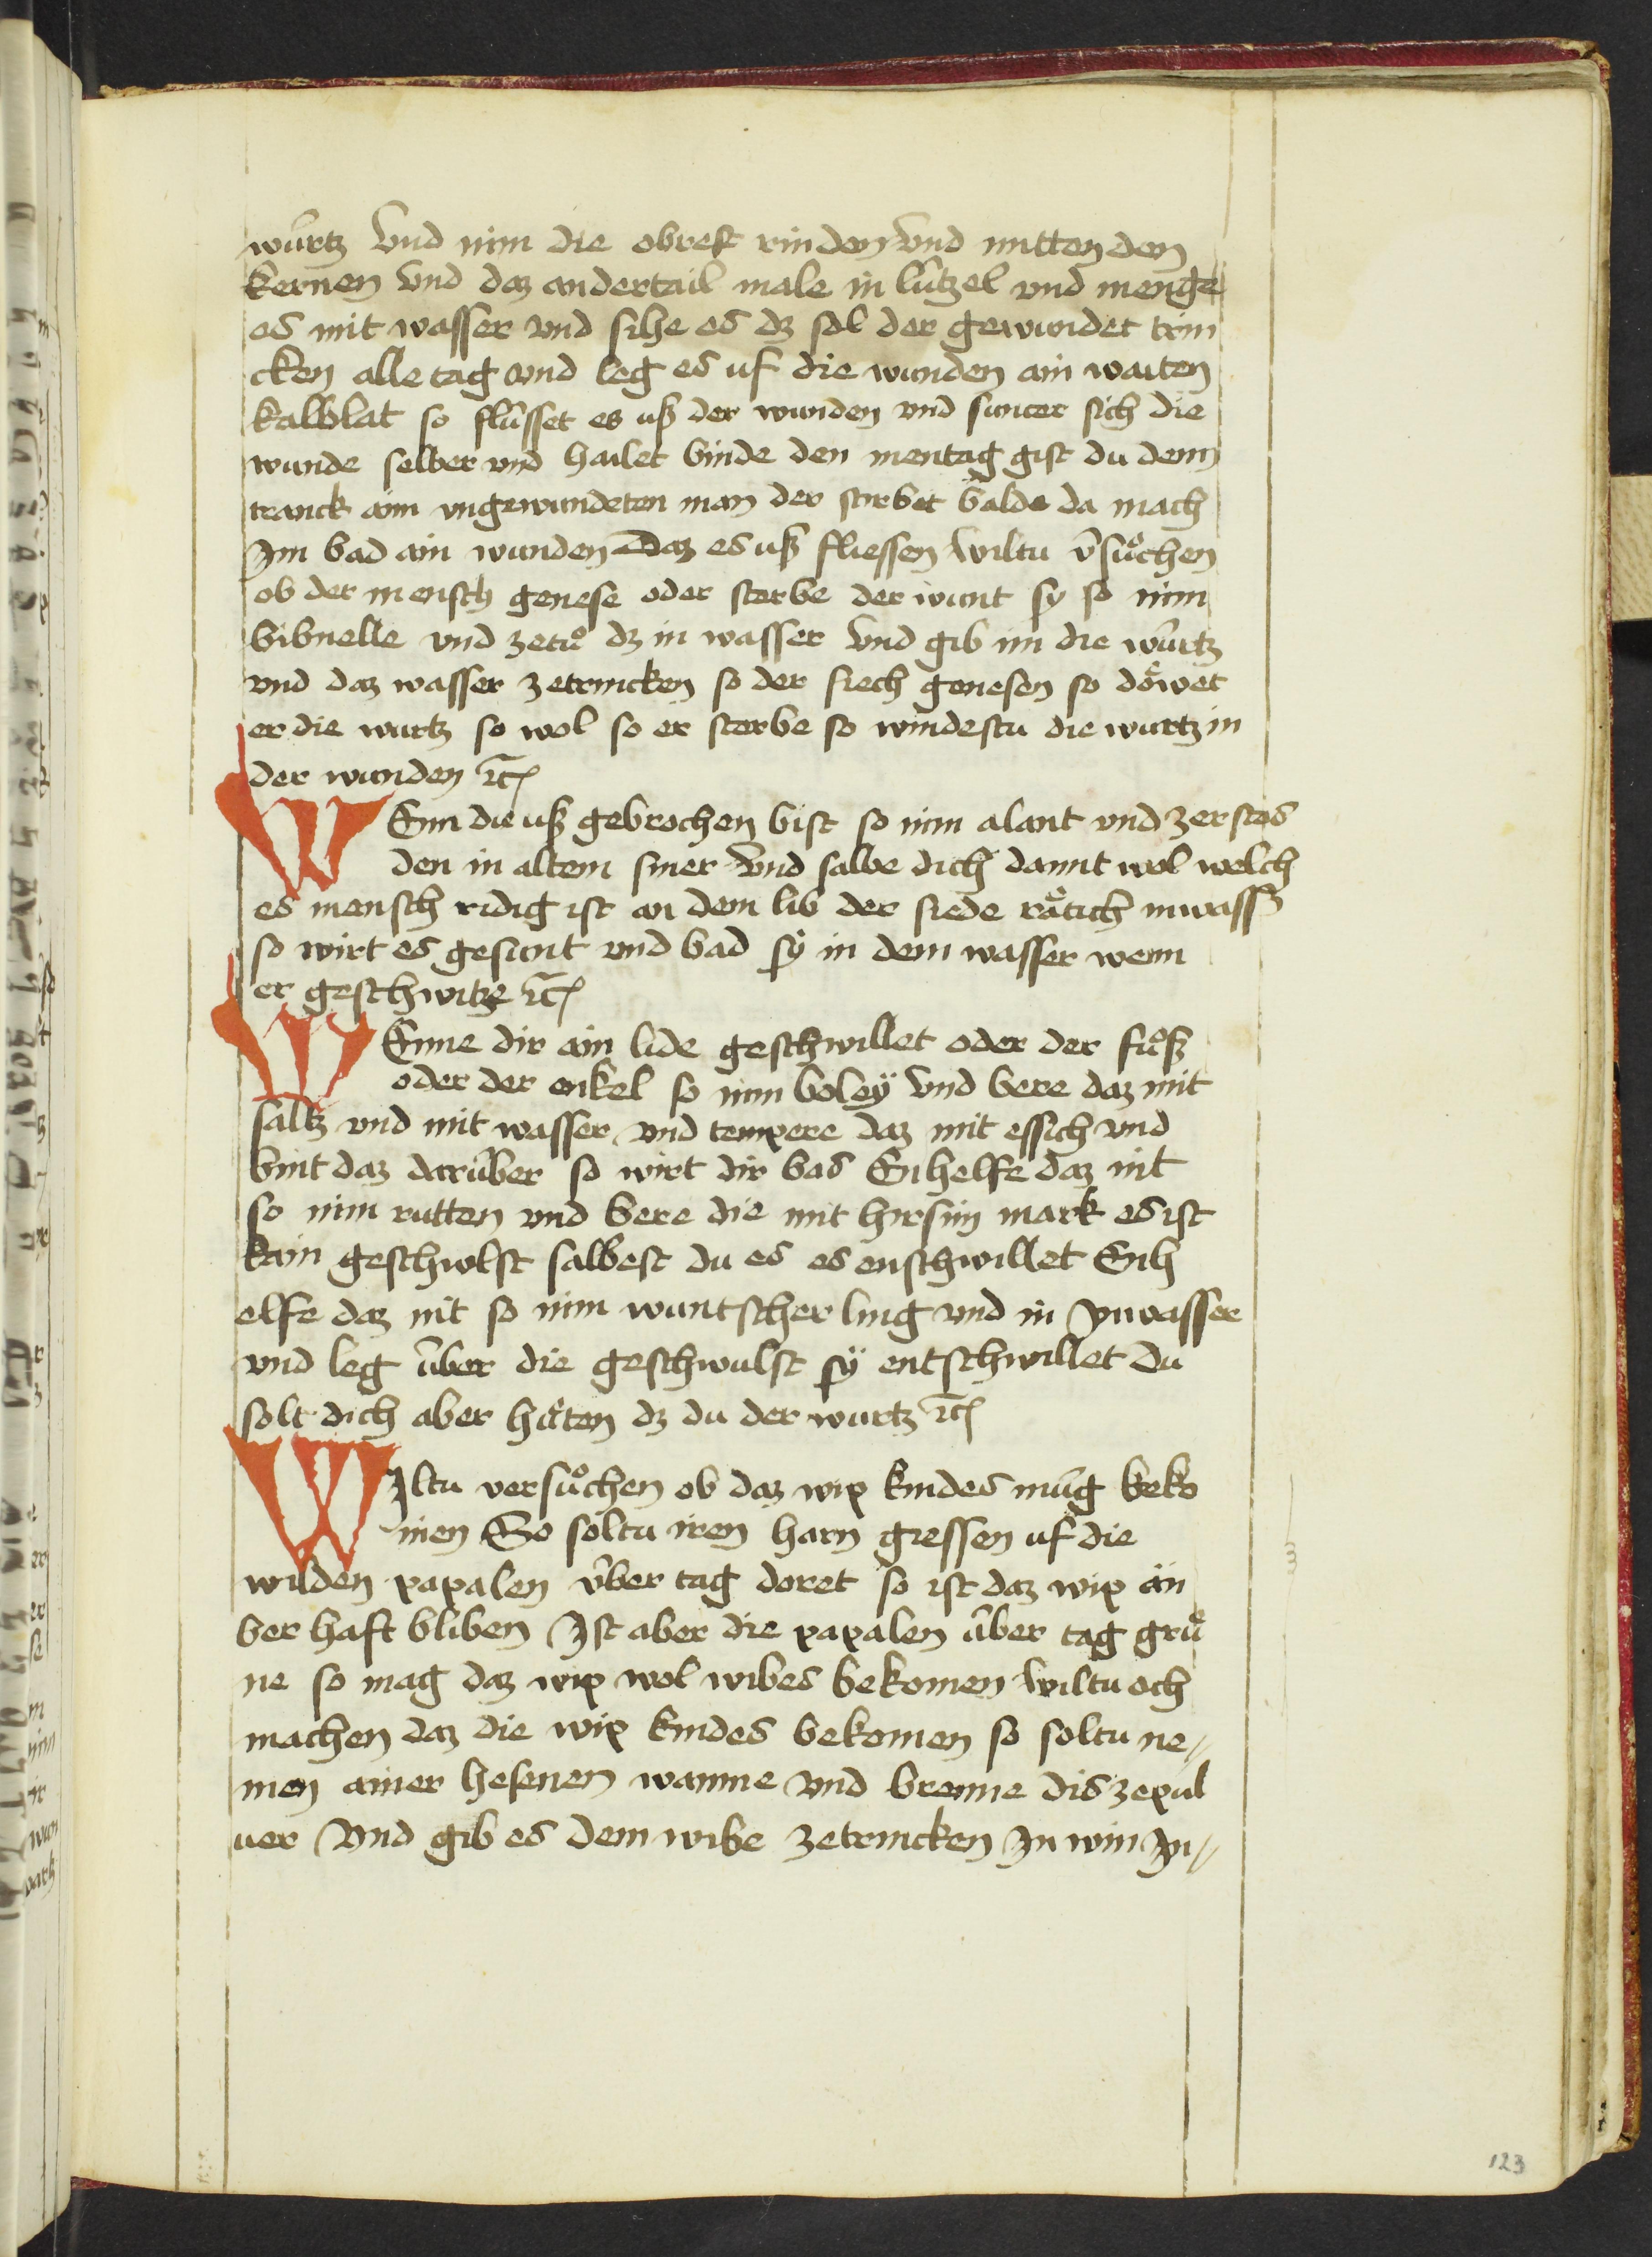 wúrtz vnd nim die obrest rinden vnd mitten den
kernen vnd daz andertail male in lútzel vnd menge
es mit wasser vnd sihe es dz sol der gewundet trin
cken alle tag vnd leg es uf die wunden ain waiten
kalblat so flússet es uß der wunden vnd sunter sich die
wunde selber vnd hailet binde den mentag gist du dem
tranck aim vngewundeten man der stirbet balde da mach
Im bad ain wunden Daz es uß fliessen wiltu v̄sůchen
ob der mensch genese oder sterbe der wunt sy so nim
bibnelle vnd zetů dz in wasser vnd gib im die wúrtz
vnd daz wasser zetrincken so der siech genesen so döwet
er die wurtz so wol so er sterbe so windestu die wurtz in
der wunden ꝛc̄
WEnn du uß gebrochen bist so nim alant vnd zerstos
den in altem smer vnd salbe dich damit wol welch
es mensch ridig ist an dem lib der siede rätich in wass͛
so wirt es gesunt vnd bad sy in dem wasser wenn
er geschwitze ꝛc̄
WEnne dir ain lide geschwillet oder der fůß
oder der enkel so nim boleÿ vnd bere daz mit
saltz vnd mit wasser vnd tempere daz mit essich vnd
bint daz darúber so wirt dir bas Enhelfe daz nit
so nim rutten vnd bere die mit hirsim mark es ist
kain geschwlst salbest du es es enschwillet Enh
elfe daz nit so nim wuntscherling vnd in Inwasser
vnd leg úber die geschwulst sÿ entschwillet Du
solt dich aber hüten dz du der wurtz ꝛc̄
WIltu versůchen ob daz wip kindes múg beko
men So soltu iren harn giessen uf die
wilden papalen v́ber tag doret so ist daz wip än
berhaft bliben Ist aber die papalen úber tag grů
ne so mag daz wip wol wibes bekomen wiltu och
machen daz die wip kindes bekomen so soltu ne⸗
men ainer hesenen wamme vnd brenne dis zepul
uer Vnd gib es dem wibe zetrincken In win In⸗
123